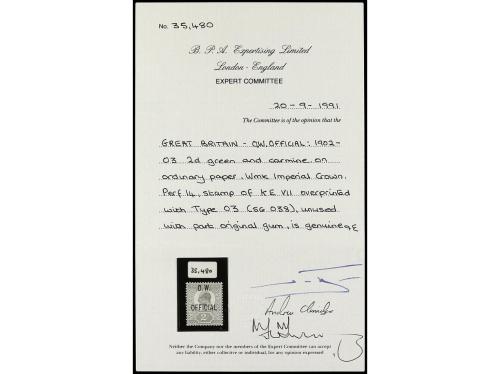 No. 35,480
B. P. A. Expertising Limited
London - England
EXPERT COMMITTEE
20-9-1991
The Committee is of the opinion that the
GREAT BRITAIN - O.W. OFFICIAL: 1902-
03 2d green and carmine on
ordinary paper, Wmk Imperial Crown,
Perf 14, stamp of KE VII overprinted
with Type 03 (SG 038), unused
with part original gum, is genuine
35,480
O.W.
OFFICIAL
2
Neither the Committee nor the members of the Expert Committee can accept
any liability, either collective or individual, for any opinion expressed